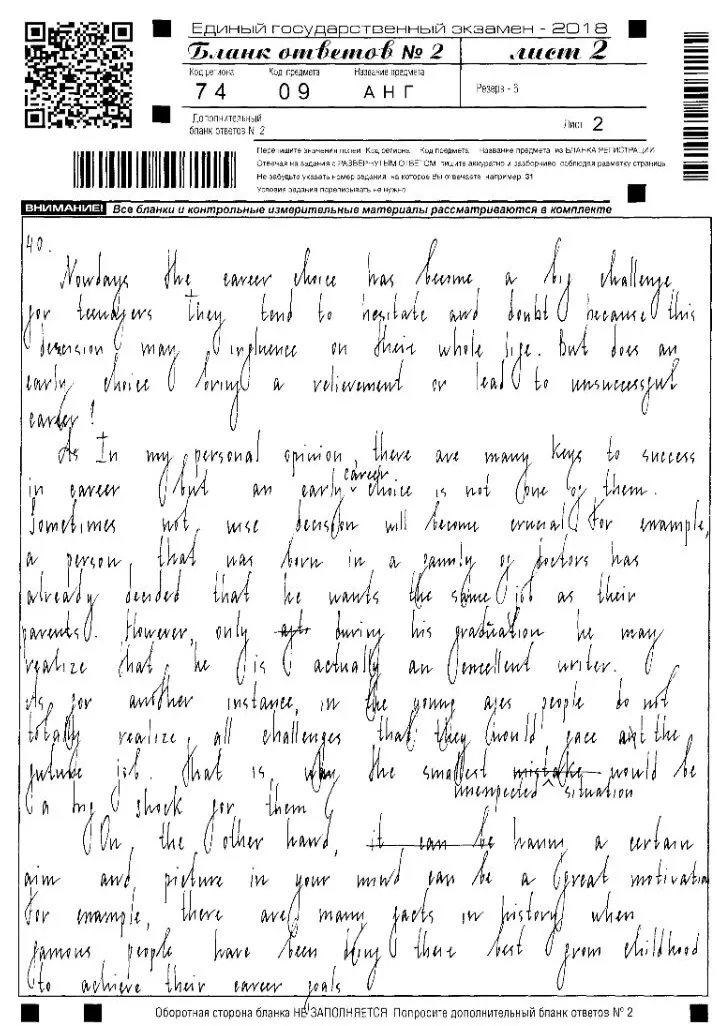 Единый государственный экзамен - 2018
Бланк ответов № 2 лист 2
Код региона Код предмета Название предмета
74 09 АНГ
Резерв - 6
Дополнительный
бланк ответов № 2
Лист 2
Перепишите значения полей Код региона Код предмета Название предмета из БЛАНКА РЕГИСТРАЦИИ
Отвечая на задания с РАЗВЕРНУТЫМ ОТВЕТОМ пишите аккуратно и разборчиво соблюдая разметку страницы
Не забудьте указать номер задания на которое Вы отвечаете например 31
Условия задания переписывать не нужно
ВНИМАНИЕ! Все бланки и контрольные измерительные материалы рассматриваются в комплекте
40.
Nowdays the career choice has become a big challenge
for teenagers They tend to hesitate and doubt because this
desension may influence on their whole life. But does an
early choice bring a relievement or lead to unsuccessful
career?
As In my personal opinion, there are many keys to success
in career but an early career choice is not one of them.
Sometimes not wise decision will become crucial For example,
a person, that was born in a family of doctors has
already decided that he wants the same job as their
parents. However, only during his graduation he may
realize that he is actually an excellent writer.
As for another instance, in the young ages people do not
totally realize, all challenges that they would face the
future job. That is why the smallest mistake would be
unexpected situation
a big shock for them
On the other hand, it can be having a certain
aim and picture in your mind can be a great motivation
For example, there are many facts in history when
famous people have been doing there best from childhood
to achieve their career goals
Оборотная сторона бланка НЕ ЗАПОЛНЯЕТСЯ Попросите дополнительный бланк ответов № 2